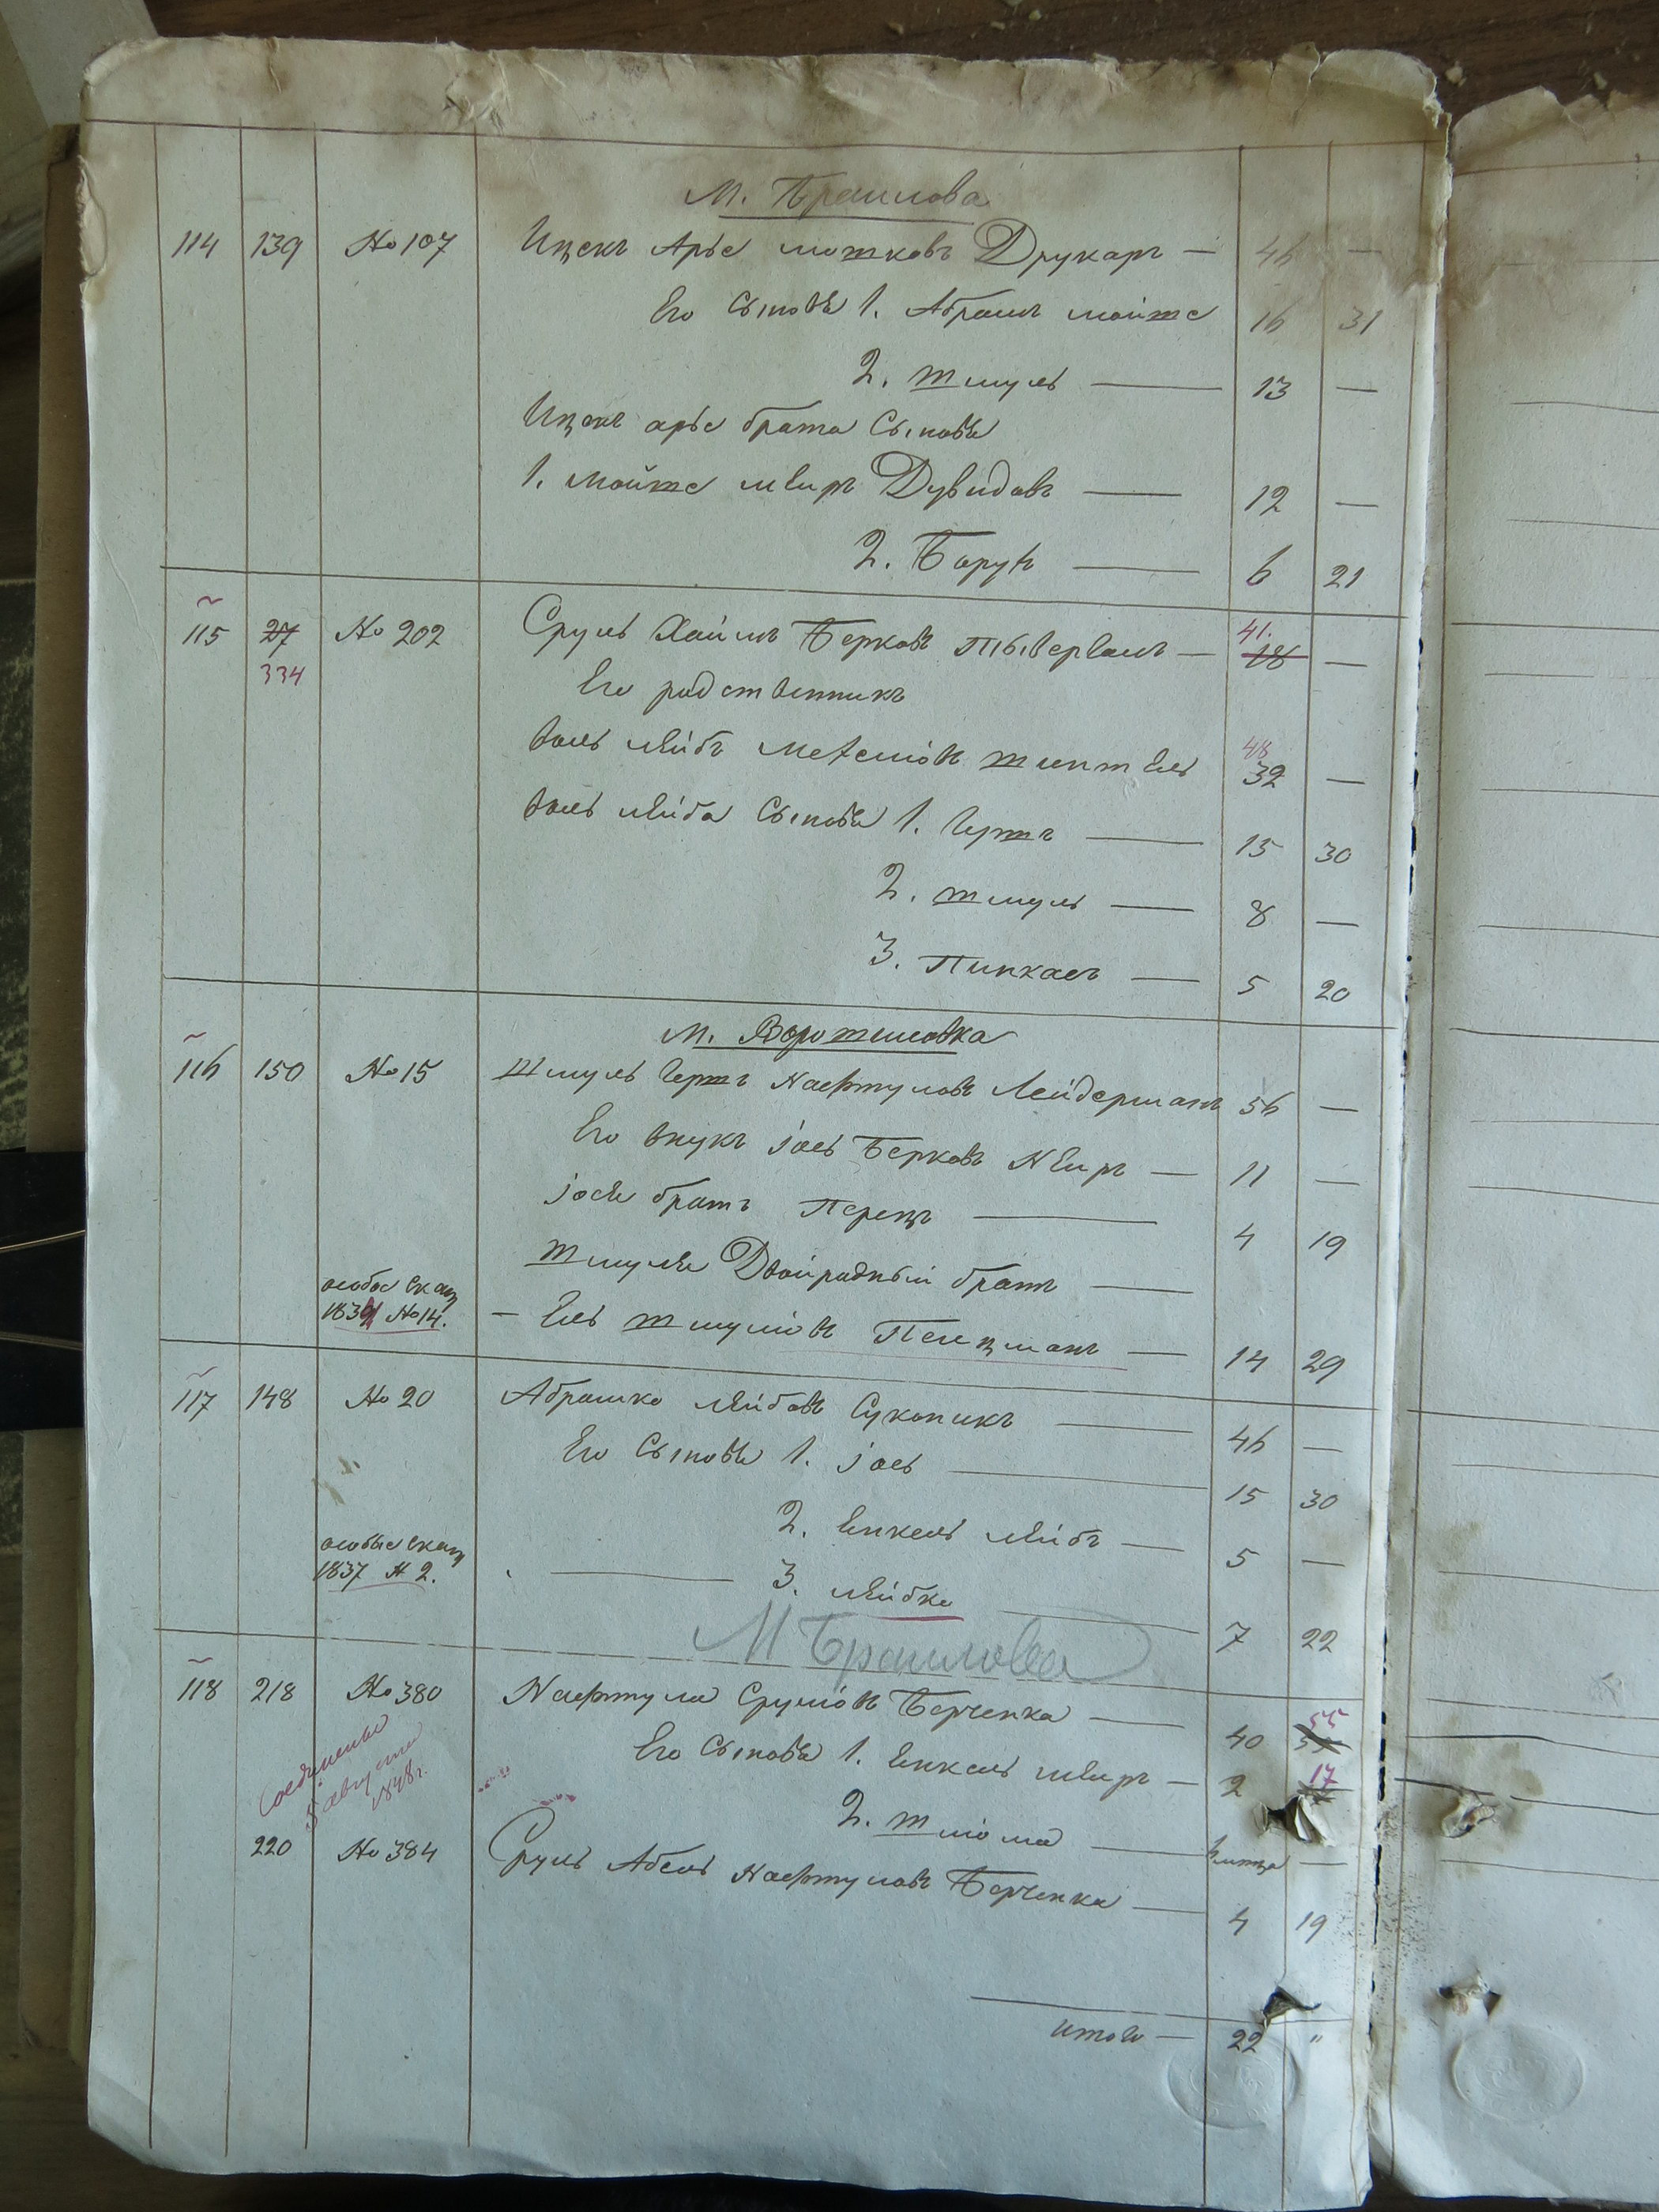 М. Браилова
114 139 № 107 Ицекъ Арье мошковъ Друкаръ — 46 —
Его сыновья 1. Абрамъ мойше 16 31
2. шмуль — 13 —
Ицекъ арье брата сыновья
1. мойше меиръ Дувидовъ — 12 —
2. Борух — 6 21
115 27 № 202 Сруль Хаимъ Берковъ — 41. 18 —
334 Его родственникъ
лейбъ 48
32 —
лейба сыновья 1. Гершъ — 15 30
2. шмуль — 8 —
3. Пинхасъ — 5 20
М. Ворошиловка
116 150 № 15 Шмуль Гершъ Нафтуловъ Лейдерманъ 56 —
Его внукъ іось Берковъ Меиръ — 11 —
іося братъ Перецъ — 4 19
шмуля Двоиродный братъ —
особое сказ
1839 № 14. — Ель шмуліовъ Пельцманъ — 14 29
117 148 № 20 Абрашко лейбовъ Суконикъ — 46 —
Его сыновья 1. іось — 15 30
2. Енкель лейбъ — 5 —
особое сказ
1837 № 2. — 3. лейбко — 7 22
М Браилова
118 218 № 380 Нафтула Сруліовъ Берченко — 40 55
Его сыновья 1. Енкель меиръ — 2 17
соединены
5 августа
1848г.
2. шліома — —
220 № 384 Сруль Абель Нафтуловъ Берченко — 4 19
итого — 22 "